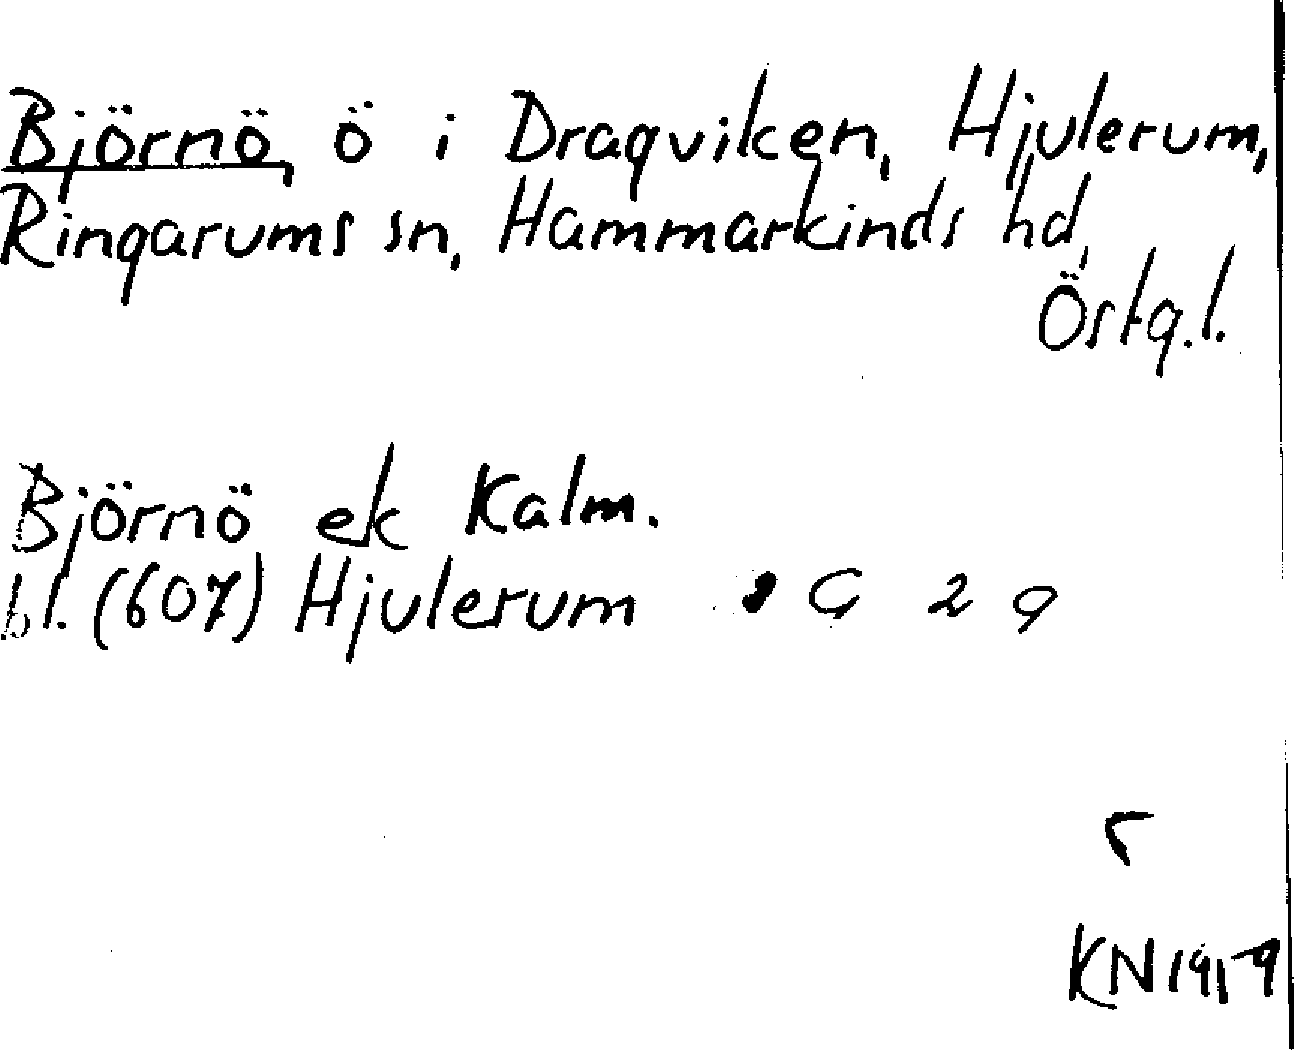 Björnö, ö i Dragviken, Hjulerum,
Ringarums sn, Hammarkinds hd,
Östg.l.
Björnö ek Kalm.
bl. (607) Hjulerum G 29
KN 1959